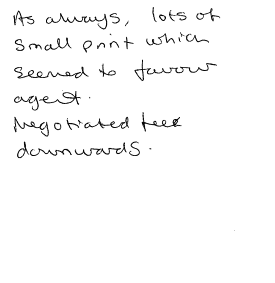 As always, lots of
small print which
seemed to favour
agent.
Negotiated fee
downwards.